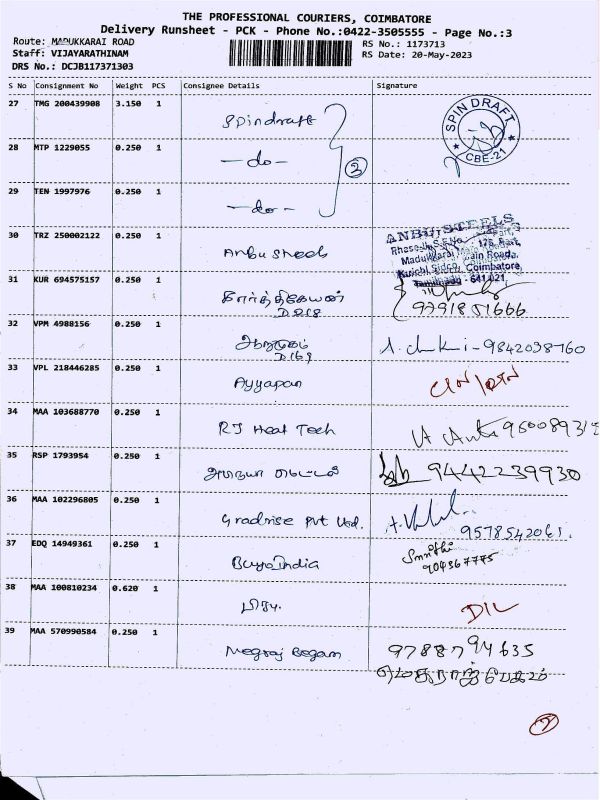 THE PROFESSIONAL COURIERS, COIMBATORE
Delivery Runsheet - PCK - Phone No.:0422-3505555 - Page No.:3
Route: MADUKKARAI ROAD RS No.: 1173713
Staff: VIJAYARATHINAM RS Date: 20-May-2023
DRS No.: DCJB117371303
S No Consignment No Weight PCS Consignee Details Signature
27 TMG 200439908 3.150 1 Spindraft
SPIN DRAFT
CBE-21
28 MTP 1229055 0.250 1 -do- 3
29 TEN 1997976 0.250 1 -do-
30 TRZ 250002122 0.250 1 Anbu steels
ANBU STEELS
178, East,
Madukkarai Main Road,
Kurichi Sidco, Coimbatore,
Tamilnadu - 641 021
31 KUR 694575157 0.250 1 கார்த்திகேயன் 9791851666
D218
32 VPM 4988156 0.250 1 ஆறுமுகம் 9842038760
D169
33 VPL 218446285 0.250 1 Ayyapan
34 MAA 103688770 0.250 1 RJ Heat Tech
35 RSP 1793954 0.250 1 9442239930
36 MAA 102296805 0.250 1 Gradrise Pvt Ltd.
9578542061.
37 EDQ 14949361 0.250 1 Buyoindia
904367775
38 MAA 100810234 0.620 1 பிரபு. D/L
39 MAA 570990584 0.250 1 Megraj Begam 9788794635
மெகராஜ் பேகம்
2